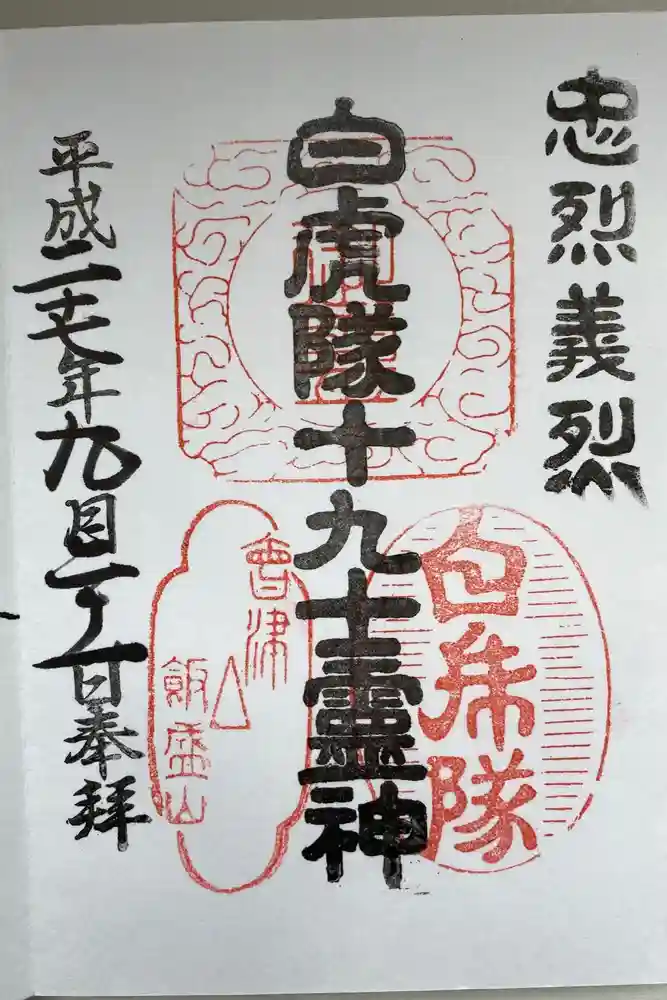 忠烈義烈
白虎隊十九士靈神
白虎隊
會津
飯盛山
平成二十七年九月二十一日奉拝